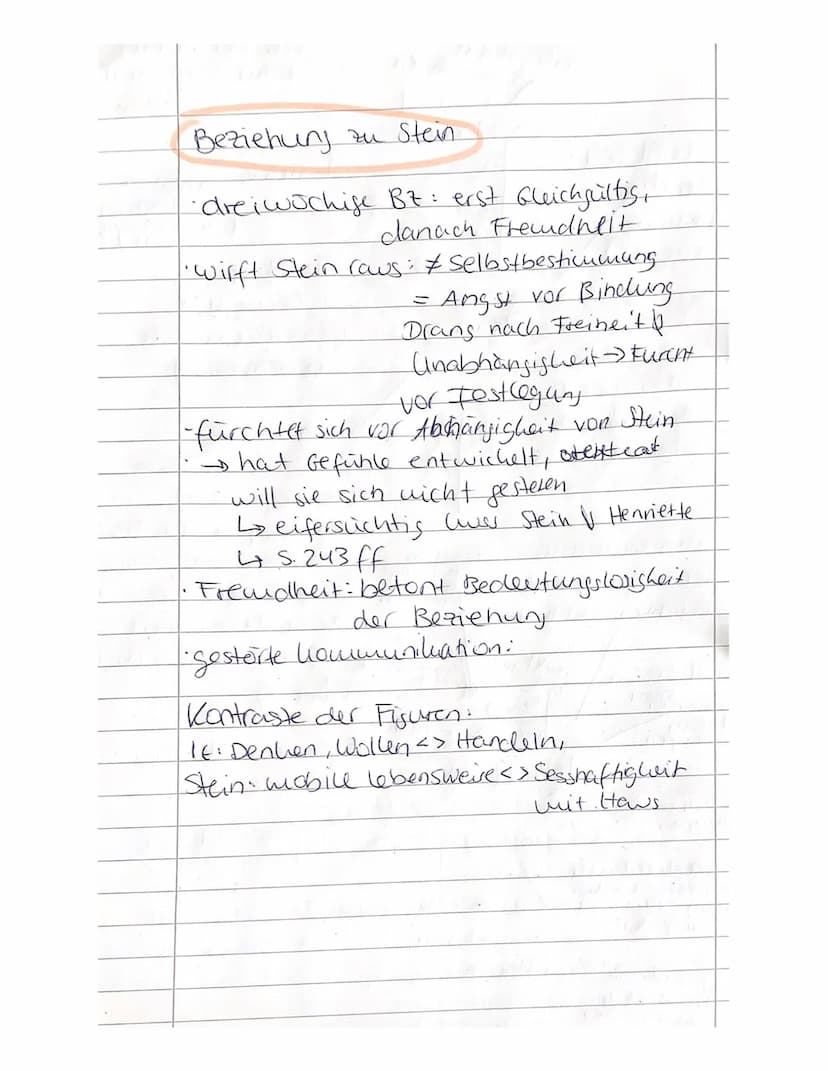 Beziehung zu Stein
· dreiwöchige Bz: erst Gleichgültig,
danach Fremdheit
· wirft Stein raus: ≠ Selbstbestimmung
= Angst vor Bindung
Drang nach Freiheit &
Unabhängigkeit → Furcht
vor Festlegung
- fürchtet sich vor Abhängigkeit von Stein
· → hat Gefühle entwickelt,
will sie sich nicht gestehen
↳ eifersüchtig Stein & Henriette
↳ S. 243 ff
· Fremdheit: betont Bedeutungslosigkeit
der Beziehung
· gestörte Kommunikation:
Kontraste der Figuren:
Denken, Wollen <> Handeln,
Stein: mobile Lebensweise <> Sesshaftigkeit
mit Haus